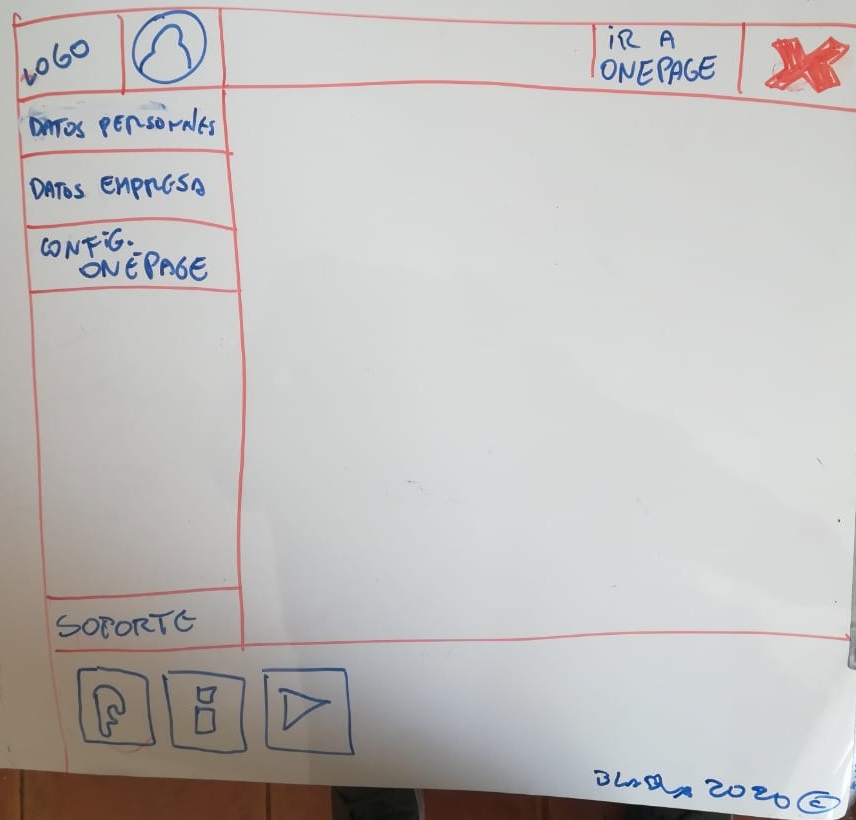 LOGO
IR A
ONEPAGE
DATOS PERSONALES
DATOS EMPRESA
CONFIG.
ONEPAGE
SOPORTE
2020 ©